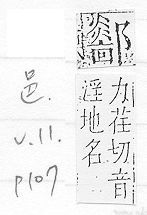 力荏切音
淫地名
邑.
v.11.
p107